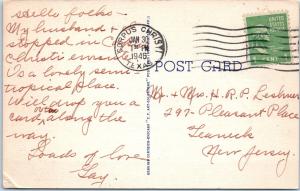 Hello folks -
My husband
stopped in C
Christi em
Is a lovely semi
tropical place.
Will drop you a
card along the
way.
Loads of love
Fay.
CORPUS CHRISTI
JAN 30
PM
1945
TEXAS
1 CENT
POST CARD
Mr. + Mrs. H. R. P. Leshner
297 - Pleasant Place
Teaneck
New Jersey.